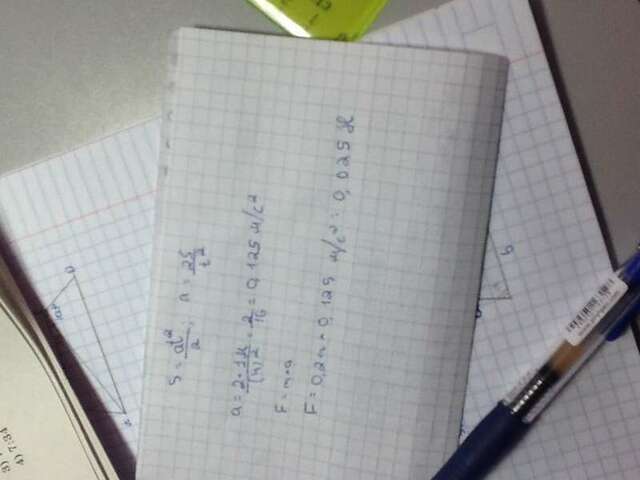 S = at²/2; a = 2S/t²
a = 2·1м/(4)² = 2/16 = 0,125 м/с²
F = m·a
F = 0,2 · 0,125 м/с² = 0,025 Н
b
4) 7:34
3)